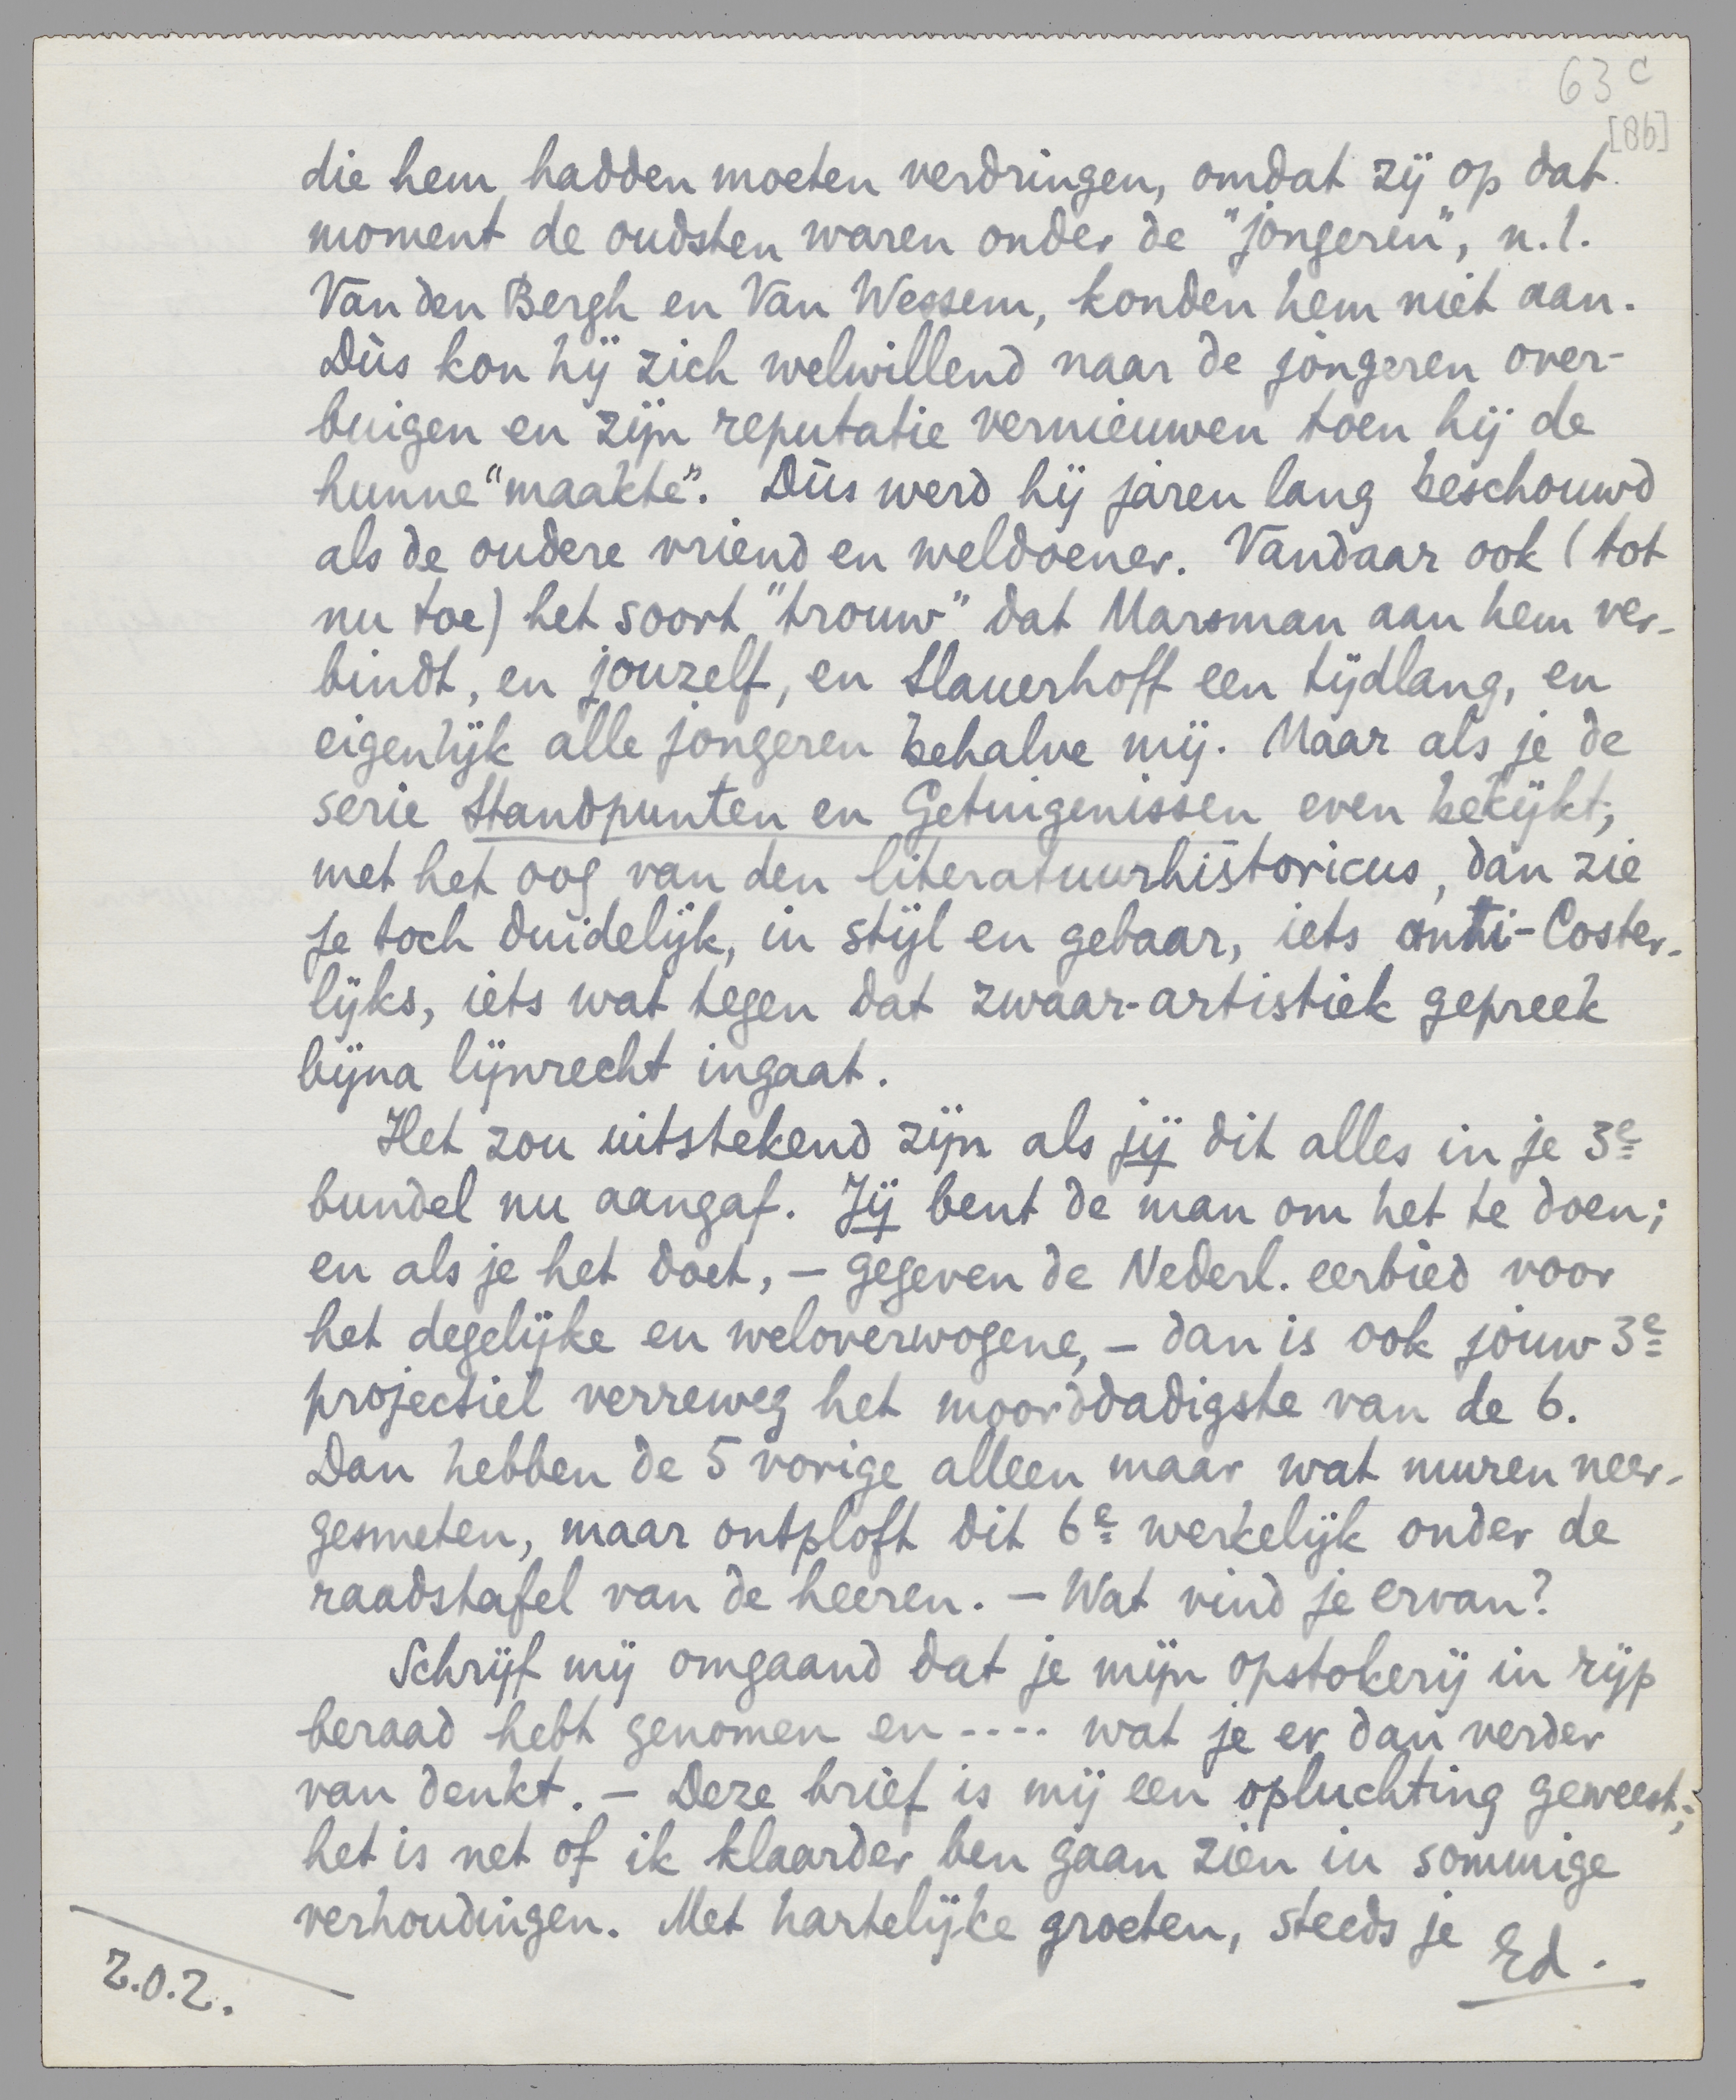 63 c
[86]
die hem hadden moeten verdringen, omdat zij op dat
moment de oudsten waren onder de "jongeren", n.l.
Van den Bergh en Van Wessem, konden hem niet aan.
Dùs kon hij zich welwillend naar de jongeren over-
buigen en zijn reputatie vernieuwen toen hij de
hunne "maakte". Dùs werd hij jaren lang beschouwd
als de oudere vriend en weldoener. Vandaar ook (tot
nu toe) het soort "trouw" dat Marsman aan hem ver-
bindt, en jouzelf, en Slauerhoff een tijdlang, en
eigenlijk alle jongeren behalve mij. Maar als je de
serie Standpunten en Getuigenissen even bekijkt,
met het oog van den literatuurhistoricus, dan zie
je toch duidelijk, in stijl en gebaar, iets anti-Coster-
lijks, iets wat tegen dat zwaar-artistiek gepreek
bijna lijnrecht ingaat.
Het zou uitstekend zijn als jij dit alles in je 3e
bundel nu aangaf. Jij bent de man om het te doen;
en als je het doet, – gegeven de Nederl. eerbied voor
het degelijke en weloverwogene, – dan is ook jouw 3e
projectiel verreweg het moorddadigste van de 6.
Dan hebben de 5 vorige alleen maar wat muren neer-
gesmeten, maar ontploft dit 6e werkelijk onder de
raadstafel van de heeren. – Wat vind je ervan?
Schrijf mij omgaand dat je mijn opstokerij in rijp
beraad hebt genomen en .... wat je er dan verder
van denkt. – Deze brief is mij een opluchting geweest;
het is net of ik klaarder ben gaan zien in sommige
verhoudingen. Met hartelijke groeten, steeds je
Ed.
Z.O.Z.